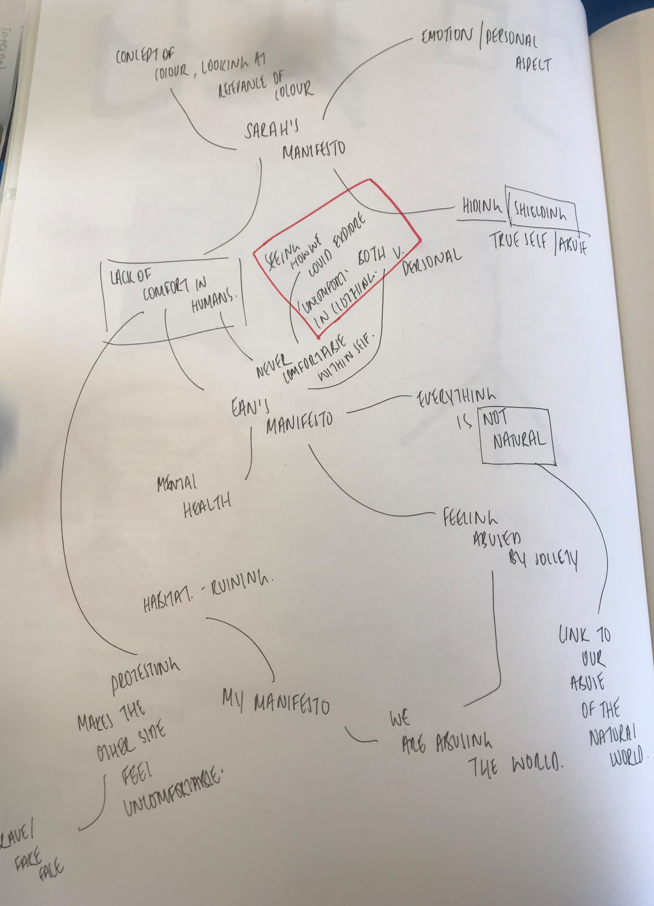 CONCEPT OF
COLOUR, LOOKING AT
RELEVANCE OF
COLOUR
EMOTION / PERSONAL
ASPECT
SARAH'S
MANIFESTO
HIDING / SHIELDING
TRUE SELF / ABUSE
SEEING
HOW WE
COULD EXPLORE
'UNCOMFORT'
IN CLOTHING.
BOTH V.
PERSONAL
LACK OF
COMFORT IN
HUMANS.
NEVER
COMFORTABLE
WITHIN SELF.
EAN'S
MANIFESTO
EVERYTHING
IS NOT
NATURAL
MENTAL
HEALTH
FEELING
ABUSED
BY SOCIETY
HABITAT. - RUINING.
LINK TO
OUR
ABUSE
OF THE
NATURAL
WORLD.
PROTESTING
MAKES THE
OTHER SIDE
FEEL
UNCOMFORTABLE.
MY MANIFESTO
WE
ARE ABUSING
THE WORLD.
FAKE
FACE